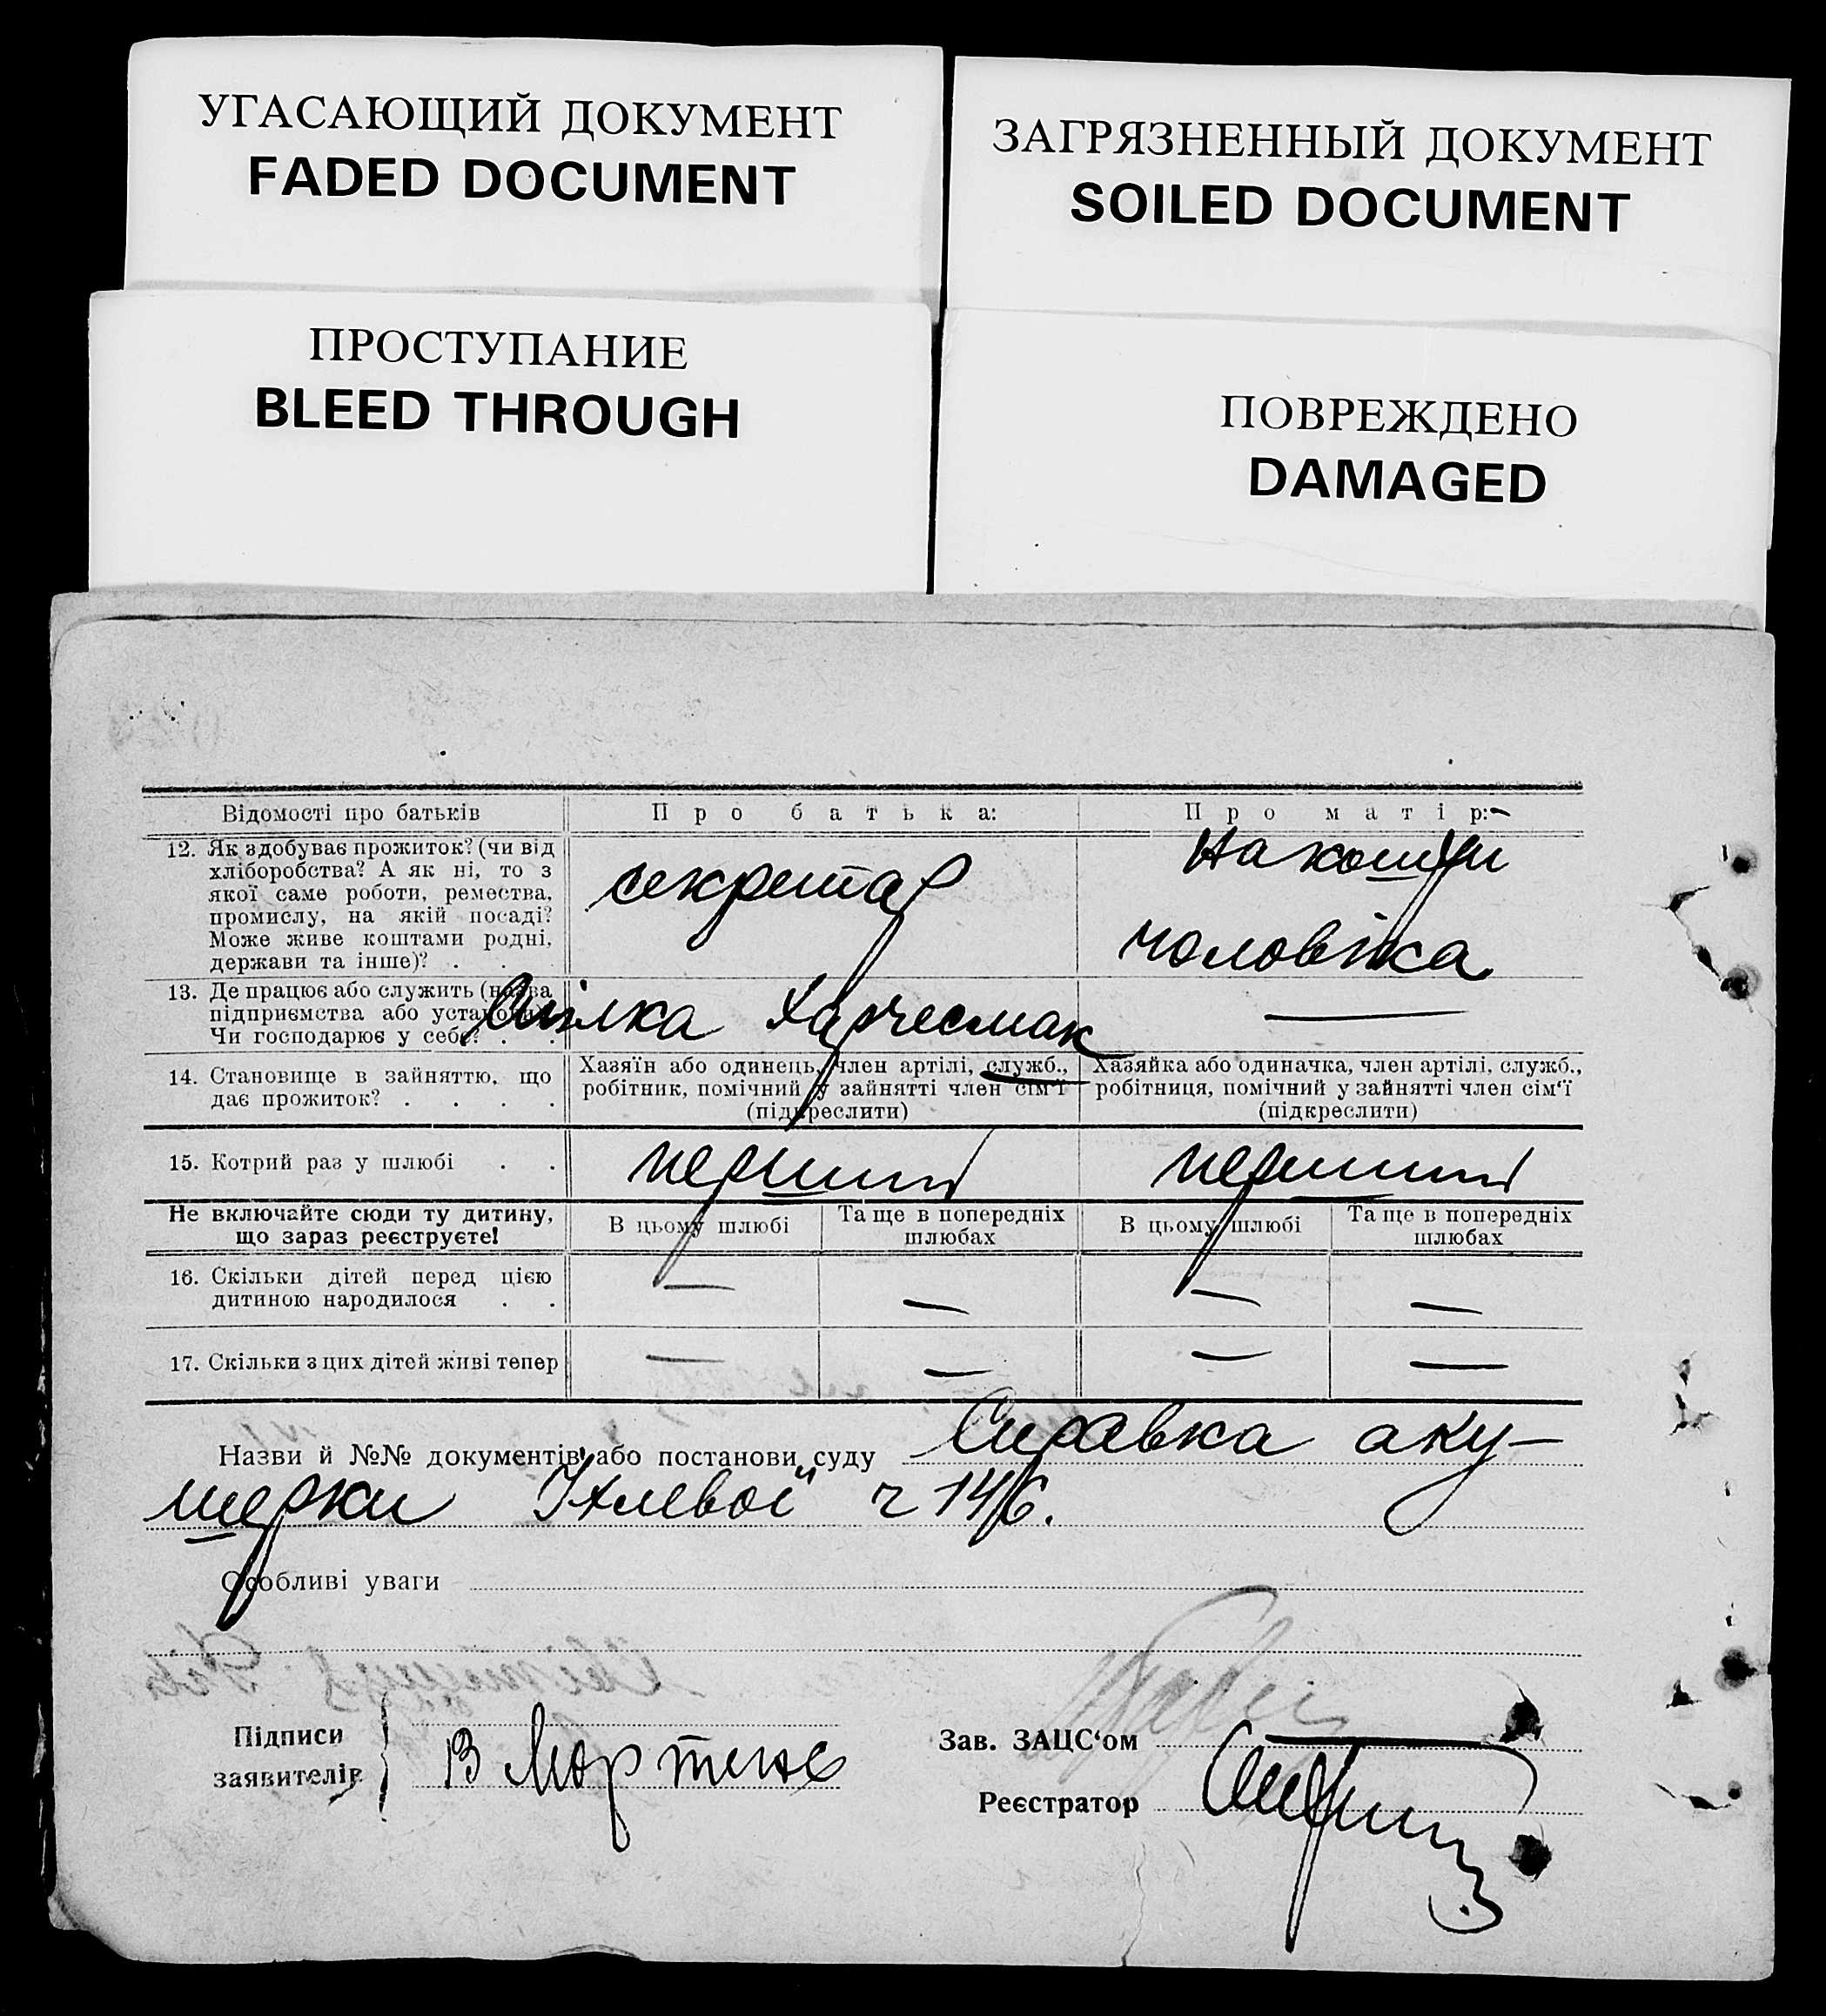 УГАСАЮЩИЙ ДОКУМЕНТ
FADED DOCUMENT
ЗАГРЯЗНЕННЫЙ ДОКУМЕНТ
SOILED DOCUMENT
ПРОСТУПАНИЕ
BLEED THROUGH
ПОВРЕЖДЕНО
DAMAGED
Відомості про батьків
Про батька:
Про матір:
12. Як здобуває прожиток? (чи від
хліборобства? А як ні, то з
якої саме роботи, ремества,
промислу, на якій посаді?
Може живе коштами родні,
держави та інше)? . . .
секретар
На кошти
чоловіка
13. Де працює або служить (назва
підприємства або установи)?
Чи господарює у себе? . .
Спілка Харчесмак
—
14. Становище в зайняттю, що
дає прожиток? . . . .
Хазяїн або одинець, член артілі, служб.,
робітник, помічний у зайнятті член сім'ї
(підкреслити)
Хазяйка або одиначка, член артілі, служб.,
робітниця, помічний у зайнятті член сім'ї
(підкреслити)
15. Котрий раз у шлюбі . .
перший
перший
Не включайте сюди ту дитину,
що зараз реєструєте!
В цьому шлюбі
Та ще в попередніх
шлюбах
В цьому шлюбі
Та ще в попередніх
шлюбах
16. Скільки дітей перед цією
дитиною народилося . .
— — — —
17. Скільки з цих дітей живі тепер
— — — —
Назви й №№ документів або постанови суду Справка аку-
шерки ч 146.
Особливі уваги
Підписи
заявителів
В
Зав. ЗАЦС'ом
Реєстратор